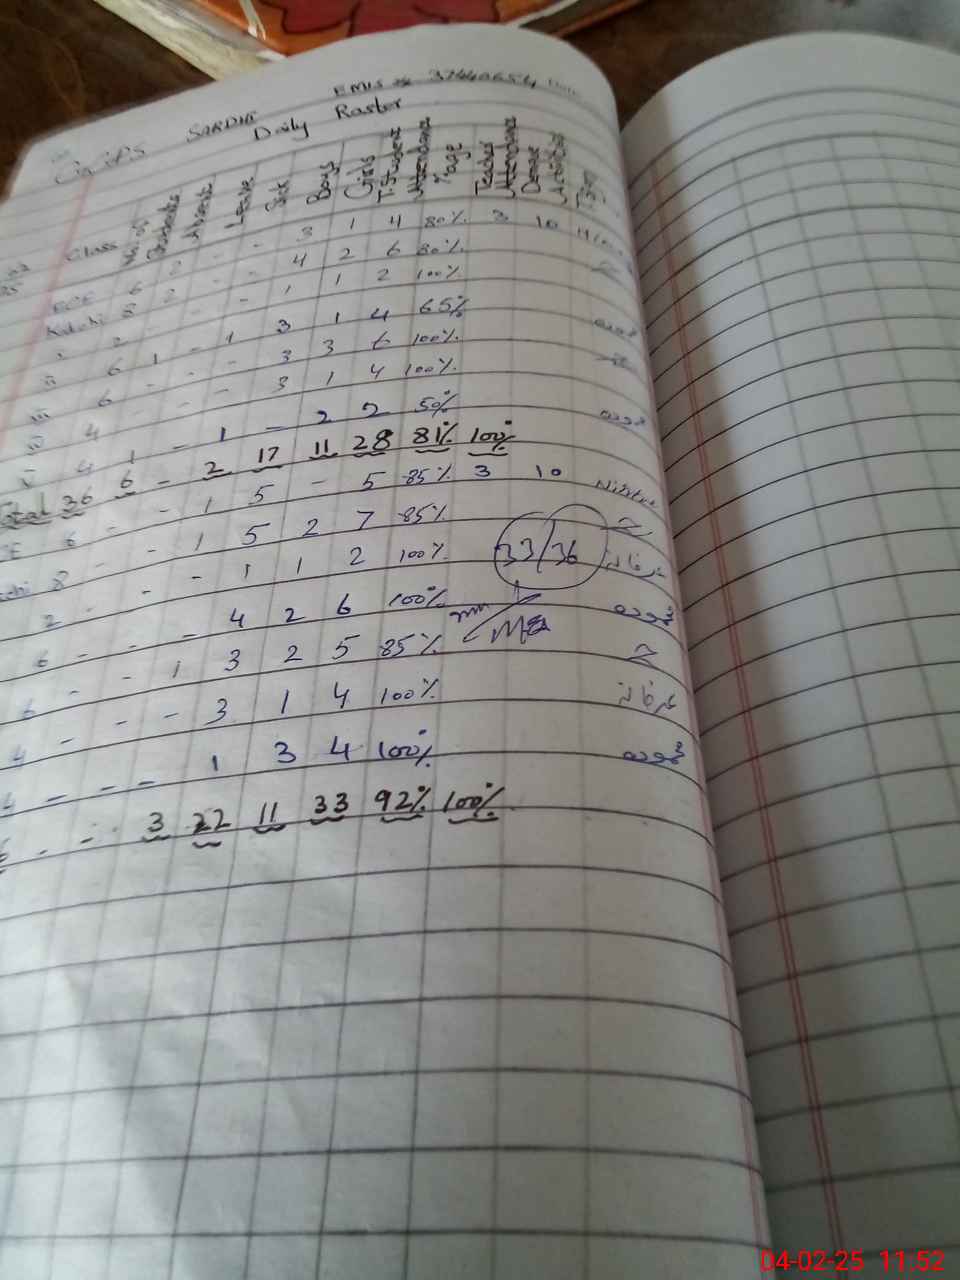 GGPS SARDHI EMIS 37440654
Daily Raster
Class No. of Students Absent Leave Sick Boys Girls T. Student Attendance %age Teacher Attendance Dengue Activities
ECE 6 2 - - 3 1 4 80% 3 10
Katchi 8 2 - - 4 2 6 80%
I 2 - - - 1 1 2 100%
II 6 1 - 1 3 1 4 65%
III 6 - - - 3 3 6 100%
IV 4 - - - 3 1 4 100%
V 4 1 - 1 - 2 2 50%
Total 36 6 - 2 17 11 28 81% 100%
CE 6 - - 1 5 - 5 85% 3 10
chi 8 - - 1 5 2 7 85%
2 - - - 1 1 2 100% 33/36 عرفانہ
6 - - - 4 2 6 100%
6 - - 1 3 2 5 85%
4 - - - 3 1 4 100% عرفانہ
4 - - - 1 3 4 100%
- - 3 22 11 33 92% 100%
04-02-25 11:52